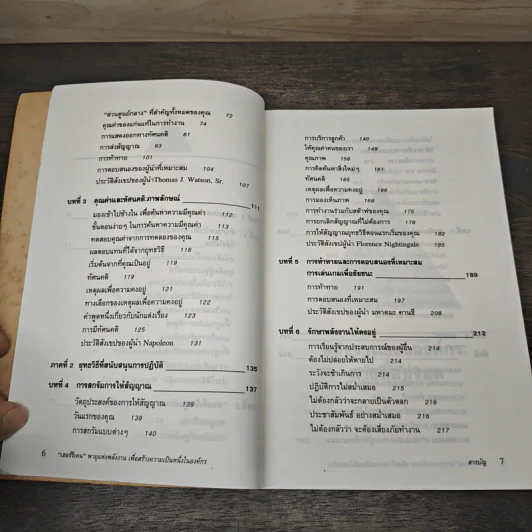 "ส่วนศูนย์กลาง" ที่สำคัญทั้งหมดของคุณ 72
คุณค่าของแก่นแท้ในการทำงาน 74
การแสดงออกทางทัศนคติ 81
การส่งสัญญาณ 93
การท้าทาย 101
การตอบสนองของผู้นำที่เหมาะสม 104
ประวัติสังเขปของผู้นำThomas J. Watson, Sr. 107
บทที่ 3 คุณค่าและทัศนคติ ภาพลักษณ์ 111
มองเข้าไปข้างใน เพื่อค้นหาความมีคุณค่า 112
ขั้นตอนง่ายๆ ในการค้นหาความมีคุณค่า 113
ทดสอบคุณค่าจากการทดลองของคุณ 115
ผลตอบแทนที่ได้จากยุทธวิธี 116
เริ่มต้นจากที่คุณเป็นอยู่ 119
ทัศนคติ 119
เหตุผลเพื่อความคงอยู่ 121
ทางเลือกของเหตุผลเพื่อความคงอยู่ 122
คำพูดหนึ่งเกี่ยวกับนักแต่งเรื่อง 123
การมีทัศนคติ 125
ประวัติสังเขปของผู้นำ Napoleon 131
ภาคที่ 2 ยุทธวิธีที่สนับสนุนการปฏิบัติ 135
บทที่ 4 การสกรัมการให้สัญญาณ 137
วัตถุประสงค์ของการให้สัญญาณ 139
วันแรกของคุณ 139
การสกรัมแบบต่างๆ 140
6 "เสอร์ริเคน" พายุแห่งพลังงาน เพื่อสร้างความเป็นหนึ่งในองค์กร
การบริการลูกค้า 140
ให้คุณค่าคนของเรา 149
คุณภาพ 156
การคิดค้นหาสิ่งใหม่ๆ 161
ทัศนคติ 165
เหตุผลเพื่อความคงอยู่ 166
การมองเห็นภาพ 169
การทำงานร่วมกับสต๊าฟของคุณ 175
การยกเลิกสัญญาณที่ไม่ต้องการ 178
การให้สัญญาณยุทธวิธีตอนแรกเริ่มของคุณ 182
ประวัติสังเขปผู้นำ Florence Nightingale 185
บทที่ 5 การท้าทายและการตอบสนองที่เหมาะสม
การเล่นเกมเพื่อชัยชนะ 189
การท้าทาย 191
การตอบสนองที่เหมาะสม 197
ประวัติสังเขปของผู้นำ มหาตมะ คานธี 208
บทที่ 6 รักษาพลังงานให้คงอยู่ 212
การเรียนรู้จากประสบการณ์ของผู้อื่น 214
ต้องไม่ปล่อยให้หายไป 214
ระวังจะช้าเกินการ 214
ปฏิบัติการไม่สม่ำเสมอ 215
ไม่ต้องกลัวว่าจะกลายเป็นตัวตลก 216
ประชาสัมพันธ์ อย่างสม่ำเสมอ 216
ไม่ต้องกลัวว่า จะต้องเสี่ยงภัยทำงาน 217
สารบัญ 7